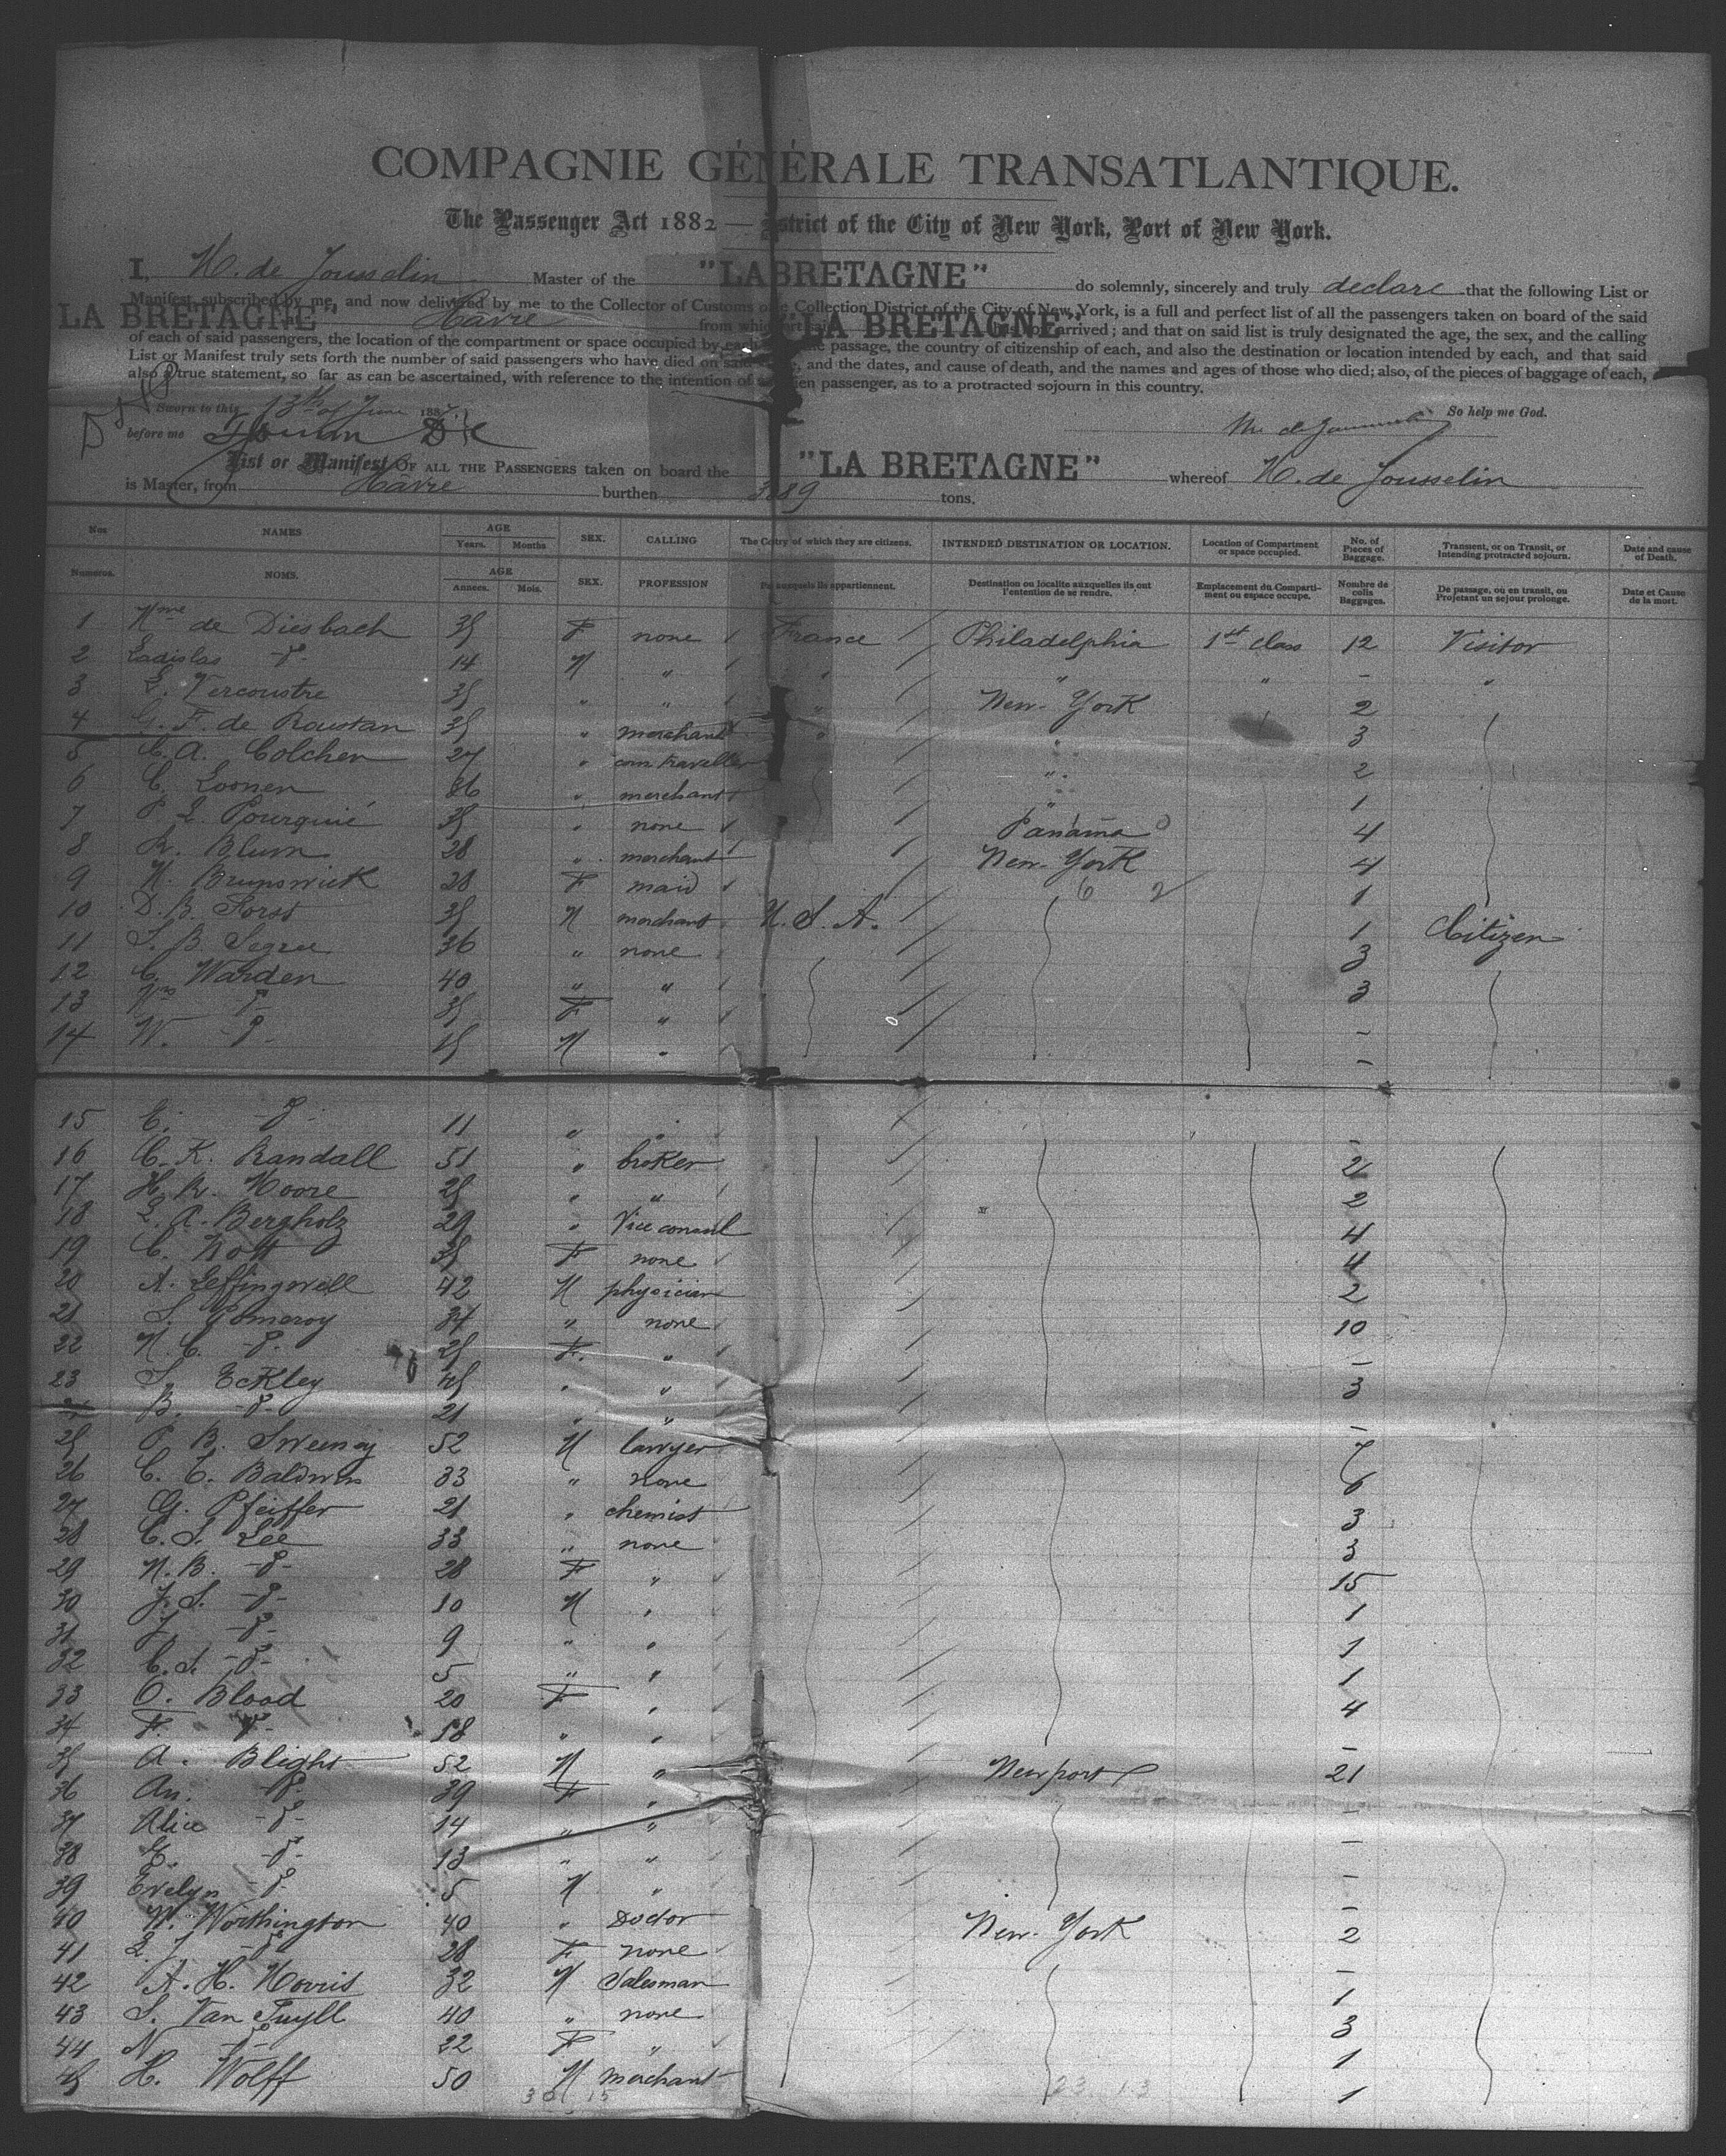 COMPAGNIE GÉNÉRALE TRANSATLANTIQUE.
The Passenger Act 1882 — District of the City of New York, Port of New York.
I, de Jousselin Master of the "LA BRETAGNE" do solemnly, sincerely and truly declare that the following List or
Manifest, subscribed by me, and now delivered by me to the Collector of Customs of the Collection District of the City of New York, is a full and perfect list of all the passengers taken on board of the said
LA BRETAGNE" Havre from which port said "LA BRETAGNE" has now arrived; and that on said list is truly designated the age, the sex, and the calling
of each of said passengers, the location of the compartment or space occupied by each the passage, the country of citizenship of each, and also the destination or location intended by each, and that said
List or Manifest truly sets forth the number of said passengers who have died on said and the dates, and cause of death, and the names and ages of those who died; also, of the pieces of baggage of each,
also a true statement, so far as can be ascertained, with reference to the intention of alien passenger, as to a protracted sojourn in this country.
Sworn to this 13th of June 1887 So help me God.
before me
List or Manifest OF ALL THE PASSENGERS taken on board the "LA BRETAGNE" whereof de Jousselin
is Master, from Havre burthen 3889 tons.
Nos NAMES AGE Years. Months SEX. CALLING The Country of which they are citizens. INTENDED DESTINATION OR LOCATION. Location of Compartment or space occupied. No. of Pieces of Baggage. Transient, or on Transit, or Intending protracted sojourn. Date and cause of Death.
Numeros. NOMS. AGE Années. Mois. SEX. PROFESSION Pays auxquels ils appartiennent. Destination ou localite auxquelles ils ont l'entention de se rendre. Emplacement du Compartiment ou espace occupe. Nombre de colis Baggages. De passage, ou en transit, ou Projetant un sejour prolonge. Date et Cause de la mort.
1 Mme de Diesbach 35 F none France Philadelphia 1st class 12 Visitor
2 Ladislas -d°- 14 M " " " " - "
3 E. Vercoustre 35 " " " New-York 2
4 G. F. de Roustan 35 " merchant " " 3
5 C. A. Colcher 27 " com. traveller " 2
6 C. Loonen 26 " merchant " 1
7 P. L. Pourquié 35 " none Panama 4
8 R. Blum 28 " merchant New-York 4
9 M. Brunswick 28 F maid 1
10 D. B. Forst 35 M merchant U. S. A. 1 Citizen
11 S. B. Segree 36 " none 3
12 C. Warden 40 " " 3
13 Mrs -d°- 35 F "
14 W. -d°- 15 M " -
15 C. -d°- 11 " " -
16 C. K. Randall 51 " broker 2
17 H. R. Moore 25 " " 2
18 L. A. Bergholz 29 " Vice consul 4
19 C. Nott 35 F none 4
20 A. Leffingwell 42 M physician 2
21 S. Pomeroy 34 " none 10
22 M. C. -d°- 25 F. " -
23 S. Eckley 45 " " 3
24 B. -d°- 21 " " -
25 P. B. Sweeney 52 M lawyer 7
26 C. C. Baldwin 33 " none 6
27 G. Pfeiffer 21 " chemist 3
28 C. S. Lee 33 " none 3
29 M. B. -d°- 28 F " 15
30 J. S. -d°- 10 M " 1
31 J. -d°- 9 " " 1
32 C. S. -d°- 5 " " 1
33 O. Blood 20 F " 4
34 F. -d°- 18 " " -
35 A. Blight 52 M " Newport 21
36 An. -d°- 39 F " -
37 Alice -d°- 14 " " -
38 E. -d°- 13 " " -
39 Evelyn -d°- 5 M " -
40 W. Worthington 40 " Doctor New-York 2
41 L. J. -d°- 28 F none -
42 A. H. Morris 32 M Salesman 1
43 S. Van Tuyll 40 " none 3
44 N. -d°- 22 F " 1
45 H. Wolff 50 M merchant 1
30 15 23 13